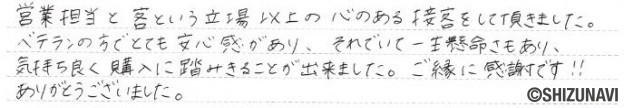 営業担当と客という立場以上の心のある接客をして頂きました。
ベテランの方でとても安心感があり、それでいて一生懸命さもあり、
気持ち良く購入に踏みきることが出来ました。ご縁に感謝です!!
ありがとうございました。
©SHIZUNAVI